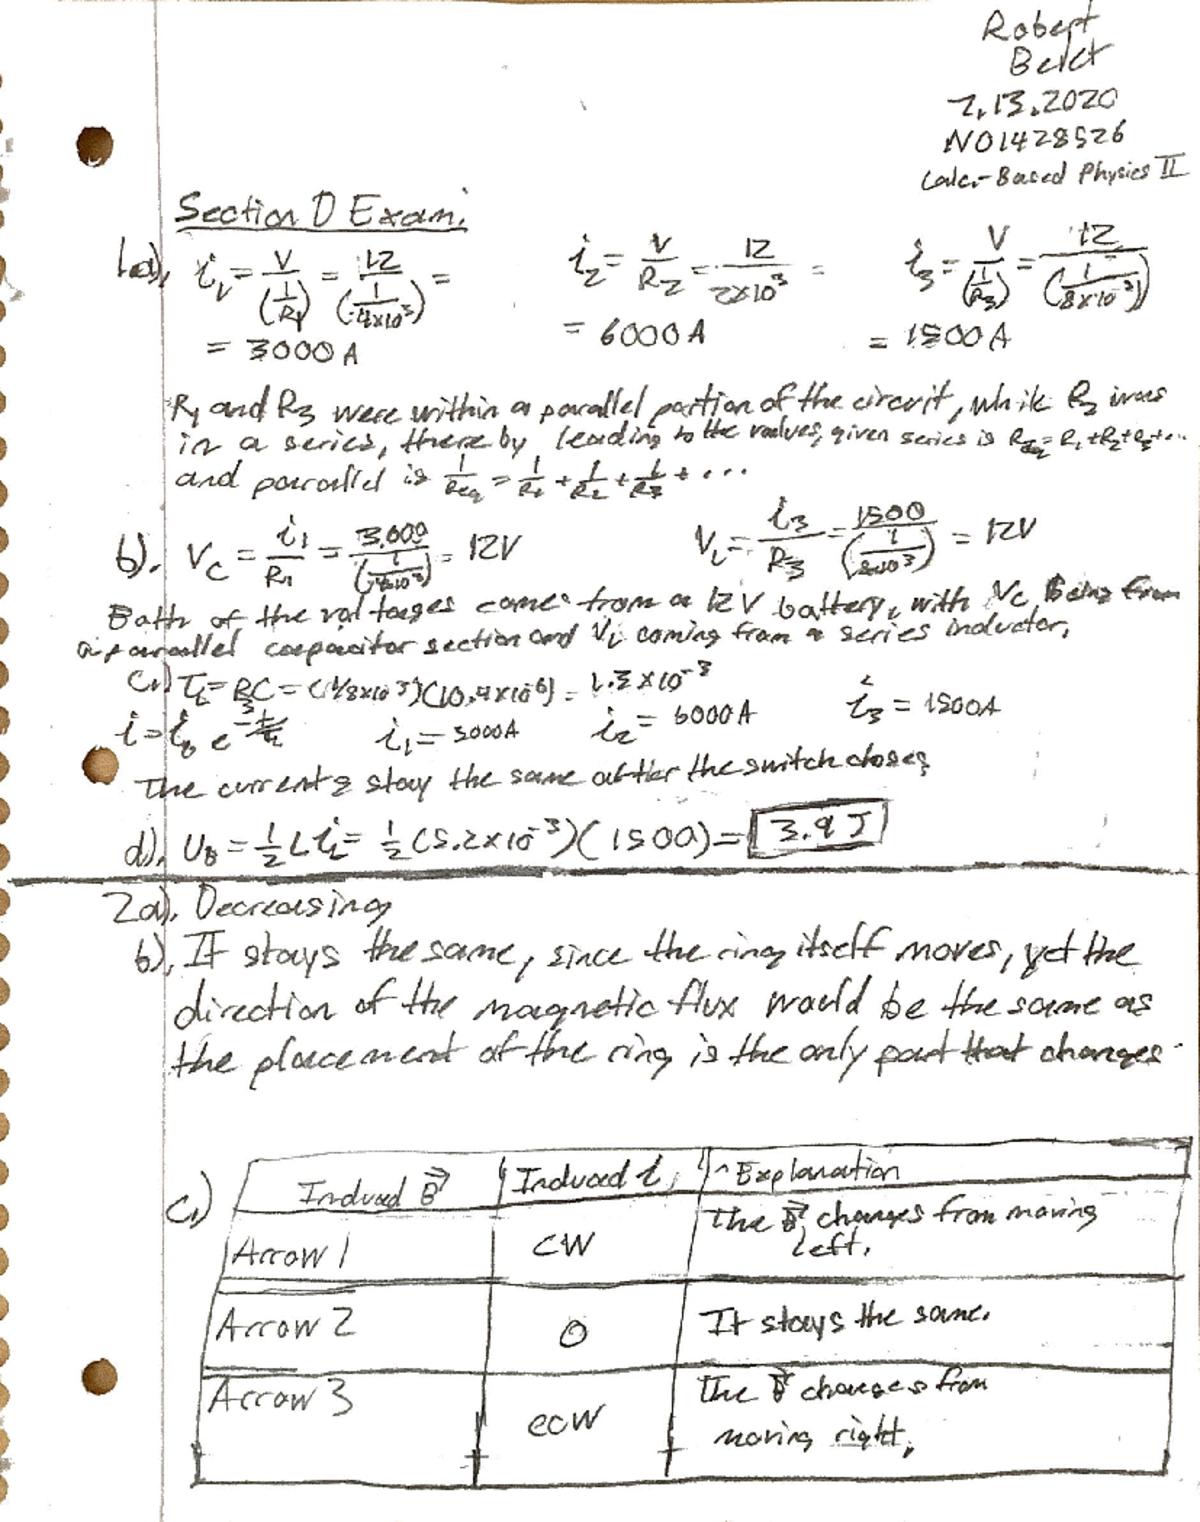 Robert
Belct
2.13.2020
N01428526
Calc.-Based Physics II
Section D Exam.
1.a). i₁ = V/(1/R₁) = 12/(1/4x10³) = i₂ = V/R₂ = 12/2x10³ = i₃ = V/(1/R₃) = 12/(1/8x10⁻³)
= 3000A = 6000A = 1500A
R₁ and R₃ were within a parallel portion of the circuit, while R₂ was
in a series, thereby leading to the values, given series is Req = R₁+R₂+R₃+...
and parallel is 1/Req = 1/R₁ + 1/R₂ + 1/R₃ + ...
b). Vc = i₁/R₁ = 3,000/(1/4x10⁻³) = 12V V_L = i₃/R₃ = 1500/(1/8x10³) = 12V
Both of the voltages come from a 12V battery, with Vc being from
a parallel capacitor section and V_L coming from a series inductor.
c.) τ_L = RC = (1/8x10⁻³)(10.4x10⁻⁶) = 1.3x10⁻³
i = i₀e i₁ = 3000A i₂ = 6000A i₃ = 1500A
The currents stay the same after the switch closes
d). U_B = 1/2 L i_L = 1/2 (5.2x10⁻³)(1500) = 3.9 J
2a). Decreasing
b). It stays the same, since the ring itself moves, yet the
direction of the magnetic flux would be the same as
the placement of the ring is the only part that changes
c.) Induced B⃗ Induced i Explanation
Arrow 1 CW The B⃗ changes from moving
left.
Arrow 2 0 It stays the same.
Arrow 3 ccW The B⃗ changes from
moving right.